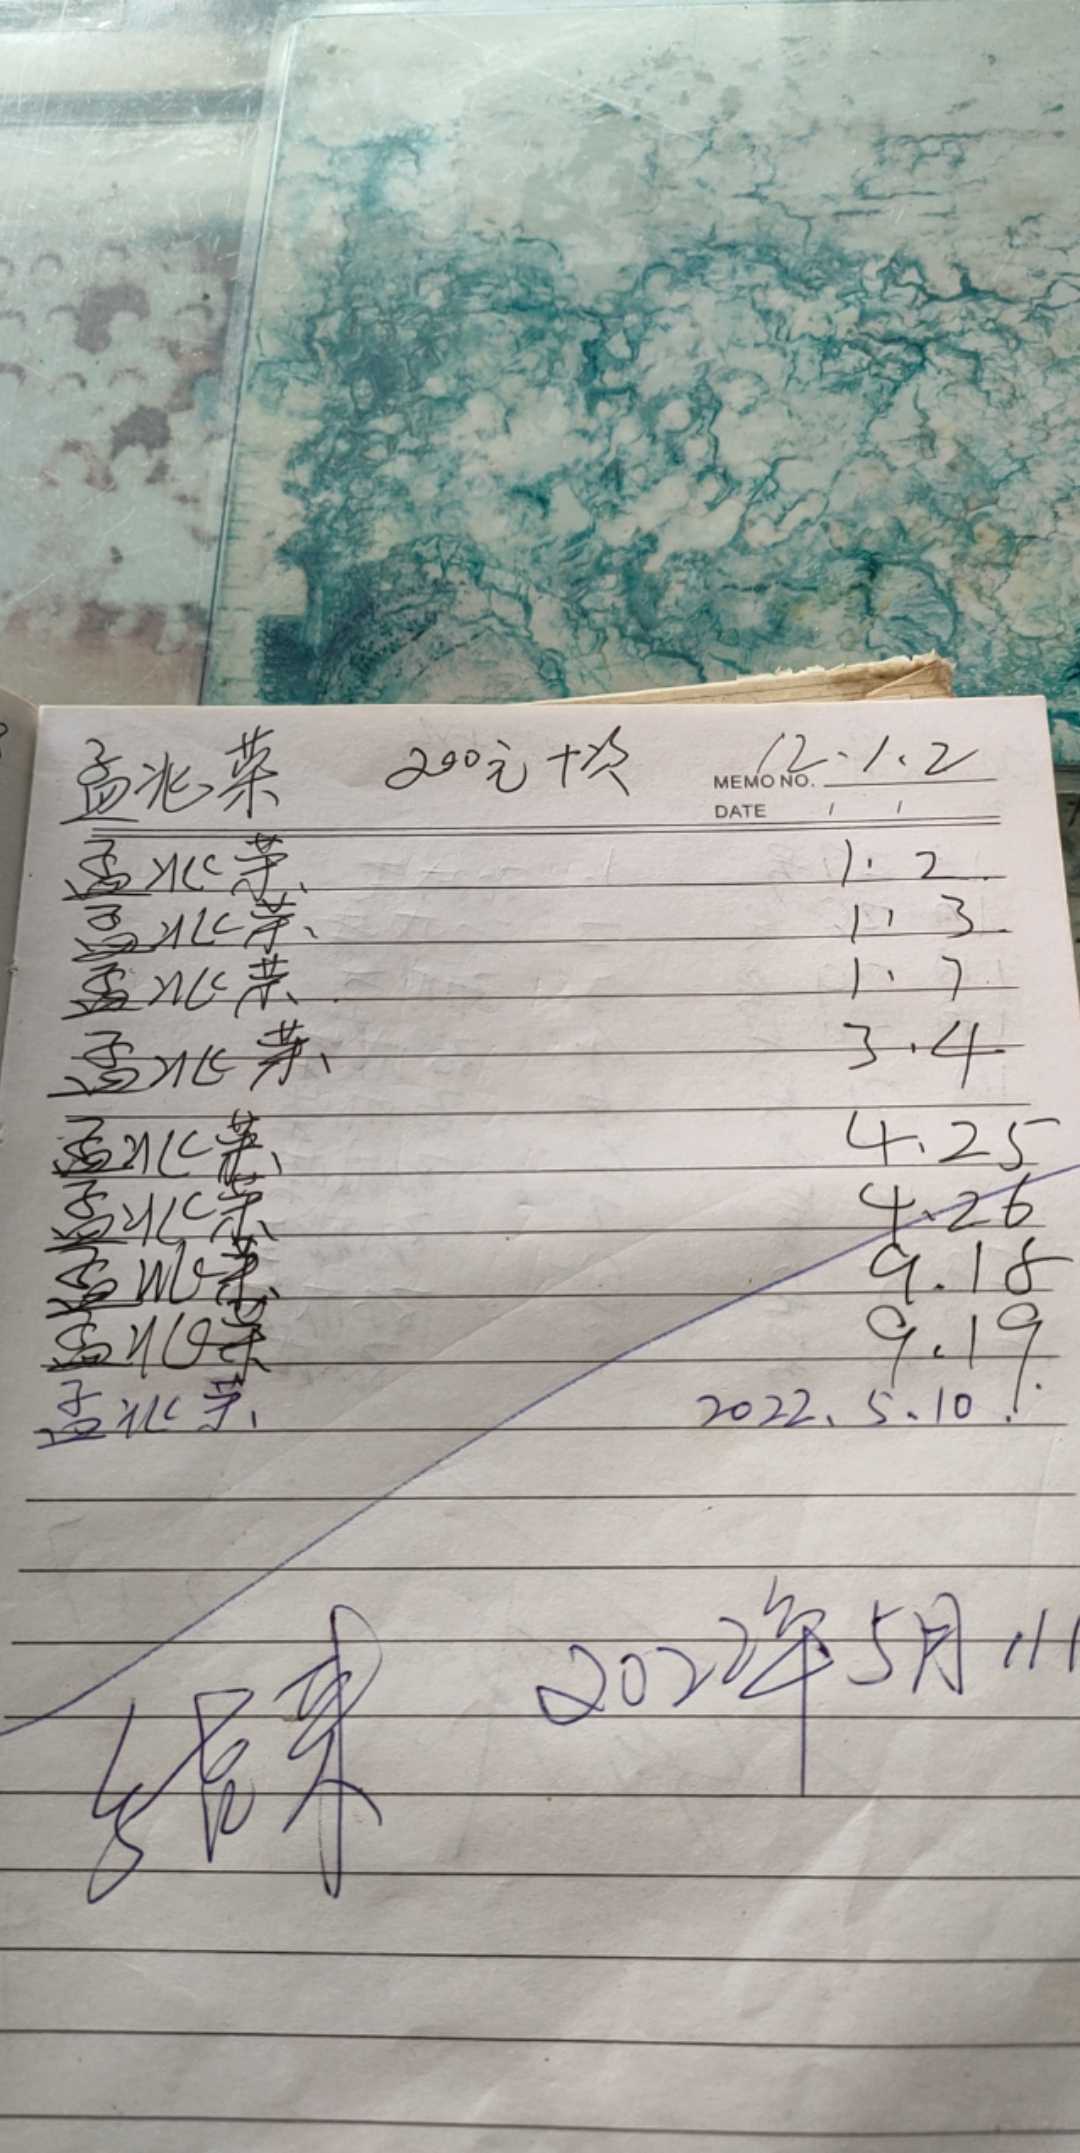 孟兆荣 200元十次 12.1.2
MEMO NO.
DATE / /
孟兆荣、 1.2.
孟兆荣、 1.3.
孟兆荣、 1.7.
孟兆荣、 3.4.
孟兆荣、 4.25
孟兆荣、 4.26
孟兆荣、 9.18
孟兆荣 9.19.
孟兆荣、 2022.5.10.
结束 2022年5月11